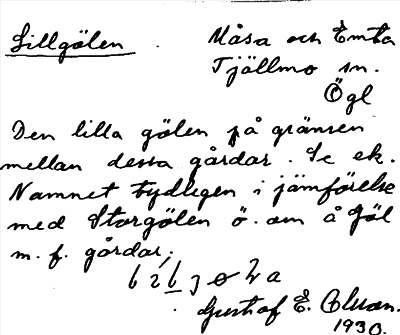 Lillgölen . Måsa och Emta
Tjällmo sn.
Ögl
Den lilla gölen på gränsen
mellan dessa gårdar. Se ek.
Namnet tydligen i jämförelse
med Storgölen ö. om å Göl
m. f. gårdar.
Gustaf E. Olsson.
1930.